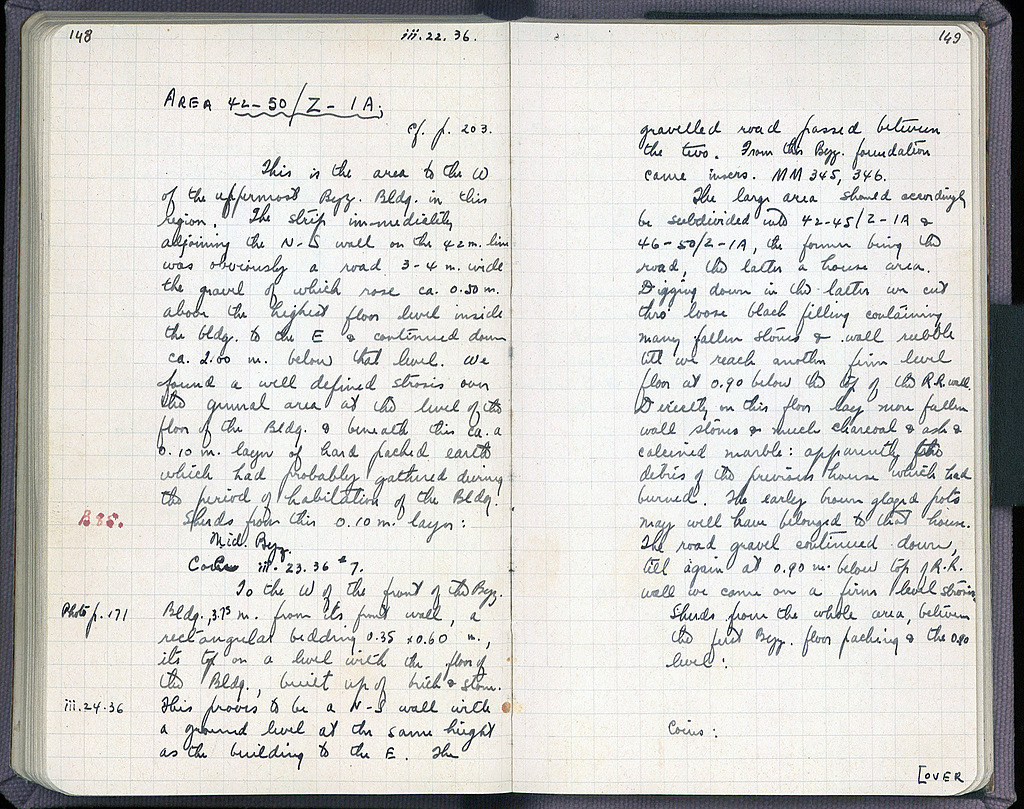 148
iii.22.36.
AREA 42-50/Z-1A.
cf. p. 203.
This is the area to the W
of the uppermost Byz. Bldg. in this
region. The strip immediately
adjoining the N-S wall on the 42 m. line
was obviously a road 3-4 m. wide
the gravel of which rose ca. 0.50 m.
above the highest floor level inside
the bldg. to the E & continued down
ca. 2.00 m. below that level. We
found a well defined strosis over
the general area at the level of the
floor of the Bldg. & beneath this ca. a
0.10 m. layer of hard packed earth
which had probably gathered during
the period of habitation of the Bldg.
B85.
Sherds from this 0.10 m. layer:
Mid. Byz.
Coin iii.23.36 #7.
To the W of the front of the Byz.
Photo p. 171
Bldg., 3.75 m. from its front wall, a
rectangular bedding 0.35 x 0.60 m.,
its top on a level with the floor of
the Bldg., built up of brick & stone.
iii.24.36
This proves to be a N-S wall with
a ground level at the same height
as the building to the E. The
149
gravelled road passed between
the two. From this Byz. foundation
came inscrs. MM 345, 346.
The large area should accordingly
be subdivided into 42-45/Z-1A &
46-50/Z-1A, the former being the
road, the latter a house area.
Digging down in the latter we cut
thro' loose black filling containing
many fallen stones & wall rubble
till we reach another firm level
floor at 0.90 below the top of the R.R. wall.
Directly on this floor lay more fallen
wall stones & much charcoal & ash &
calcined marble: apparently the
debris of the previous house which had
burned. The early brown glazed pots
may well have belonged to that house.
The road gravel continued down,
till again at 0.90 m. below top of R.R.
wall we come on a firm level strosis
Sherds from the whole area, between
the first Byz. floor packing & the 0.90
level:
Coins:
[OVER